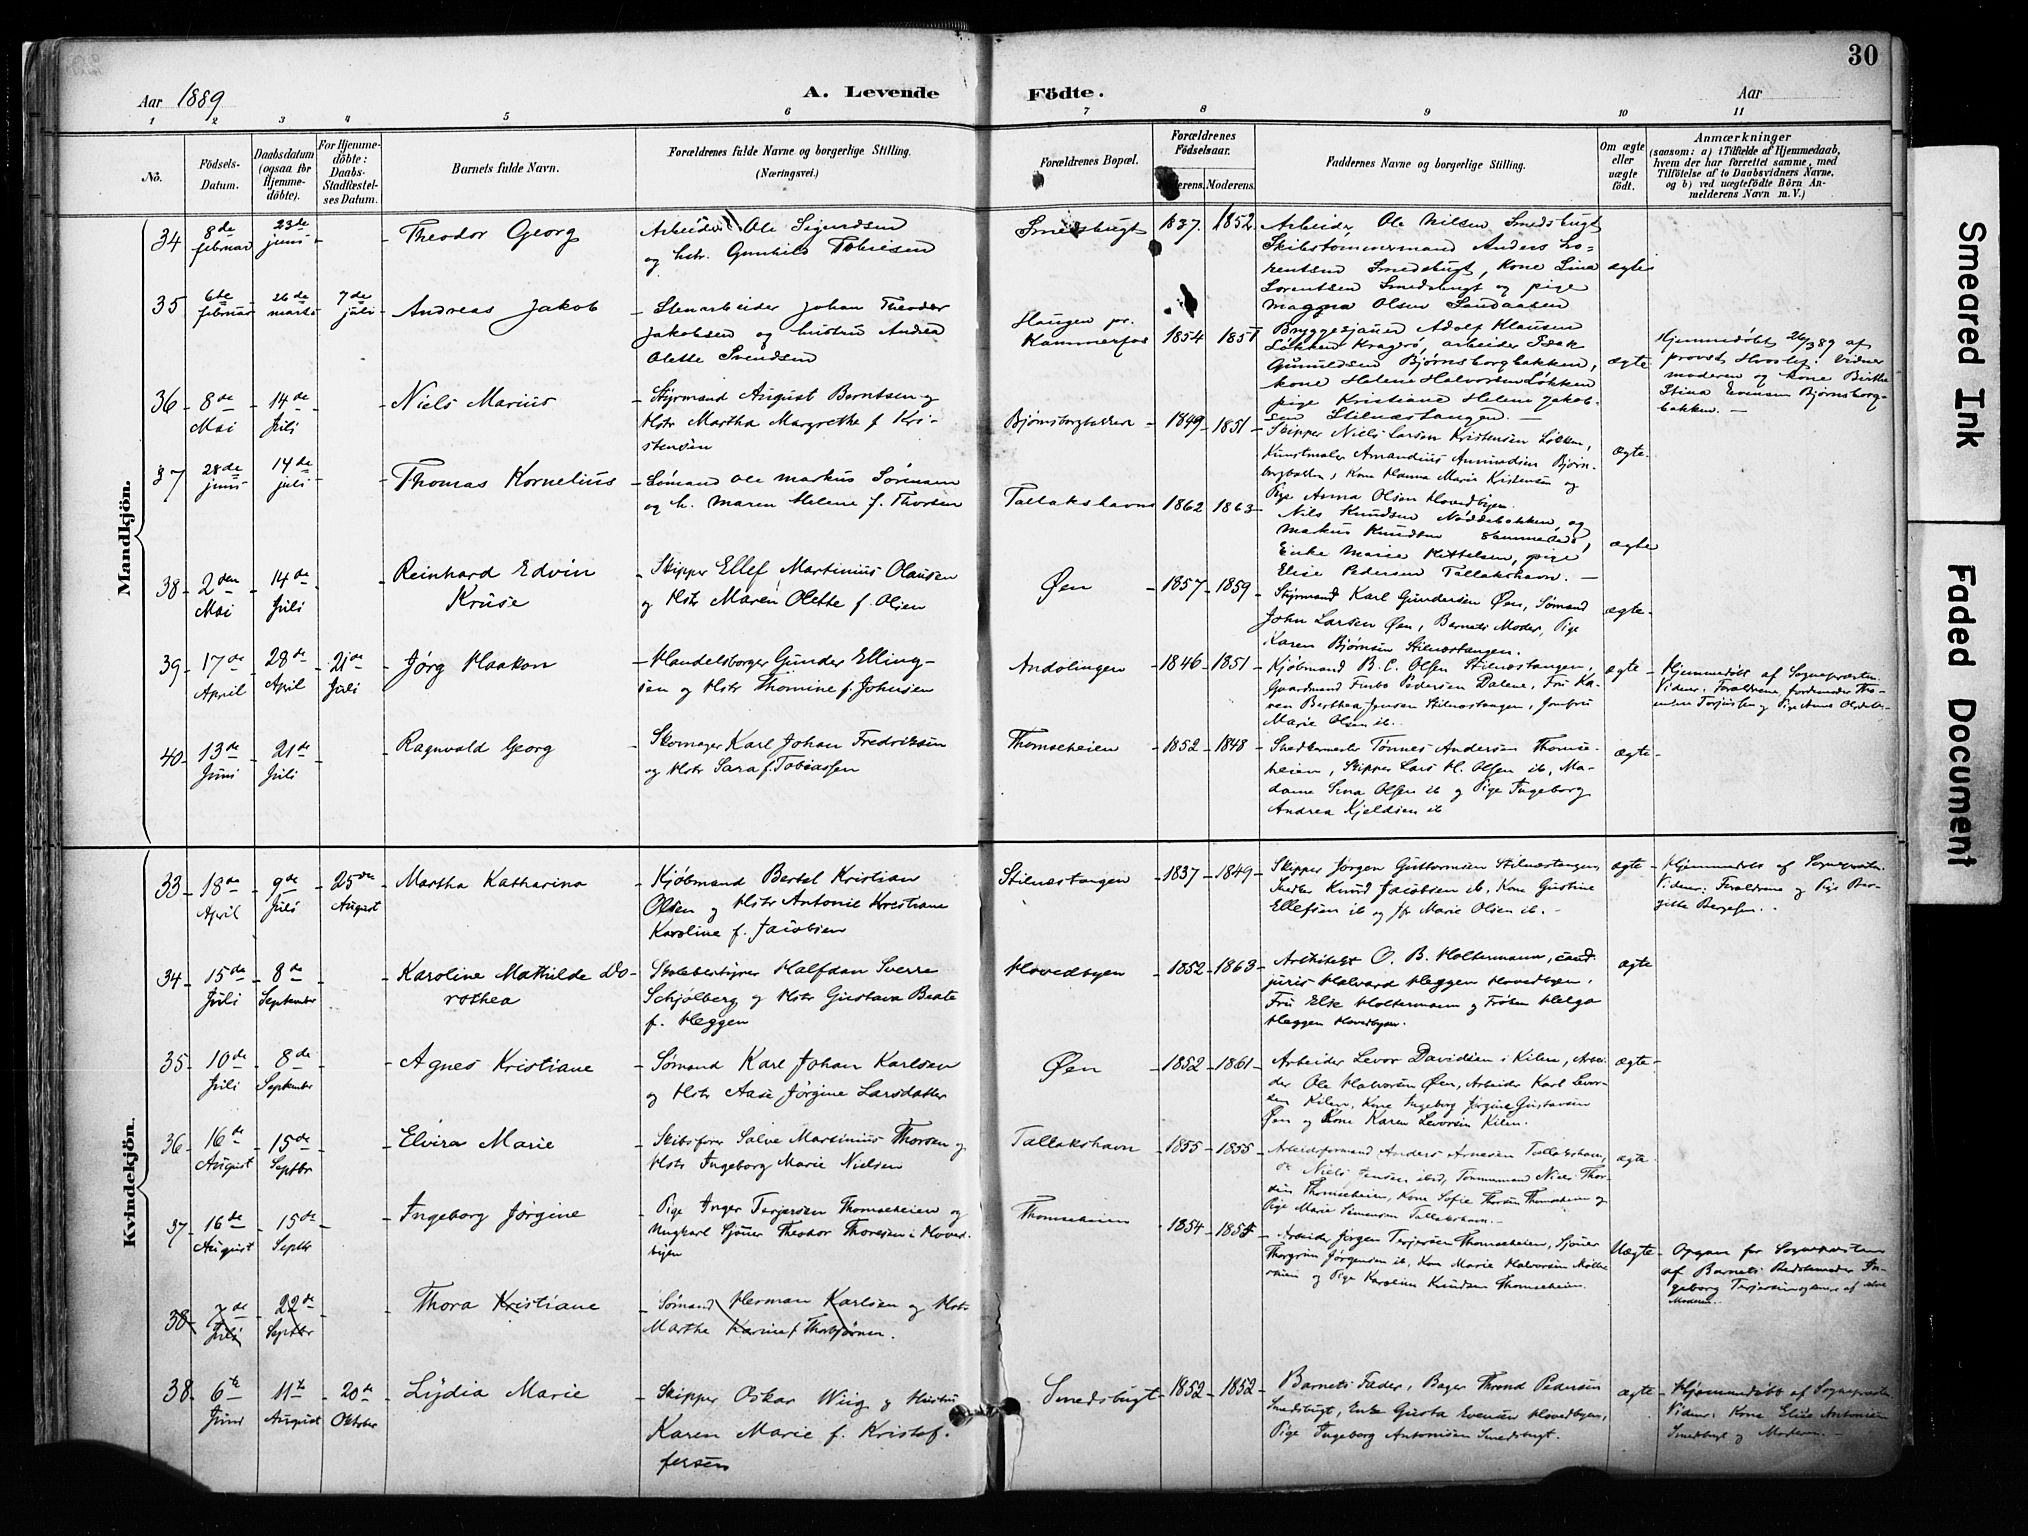 30
Aar 1889
A. Levende
Födte.
Aar
1 2 3 4 5 6 7 8 9 10 11
No.
Födsels-
Datum.
Daabsdatum
(ogsaa for
Hjemme-
döbte).
For Hjemme-
döbte:
Daabs-
Stadfæstel-
ses Datum.
Barnets fulde Navn.
Forældrenes fulde Navne og borgerlige Stilling.
(Næringsvei.)
Forældrenes Bopæl.
Forældrenes
Födselsaar.
Moderens.
Faddernes Navne og borgerlige Stilling.
Om ægte
eller
uægte
födt.
Anmærkninger
(saasom: a) i Tilfælde af Hjemmedaab,
hvem der har forrettet samme, med
Tilföielse af to Daabsvidners Navne,
og b) ved uægtefödte Börn An-
melderens Navn m. V.)
Mandkjön.
34 8de februar 23de juni Theodor Georg
Arbeider Ole Sigurdsen
og hstr. Gunhild Tobiesen
Smedsbugt 1837. 1852.
Arbeider Ole Nilsen Smedsbugt
Skibstømmermand Anders Lo-
rentsen Smedsbugt, Kone Lina
Lorentsen Smedsbugt og pige
Magna Olsen Sandaasen
ægte
35 6te februar 26de marts 7de juli Andreas Jakob
Stenarbeider Johan Theodor
Jakobsen og hustru Andrea
Olette Svendsen
Haugen pr.
Kammerfos 1854 1851
Bryggesjauer Adolf Klausen
Løkken Kragerø, arbeider Isak
Gunuldsen Bjørnsborgbakken,
kone Helene Halvorsen Løkken
pige Kristiane Helene Jakob-
sen Stilnæstangen.
ægte
Hjemmedøbt 26/3 89 af
provst Hvoslef. Vidner
moderen og kone Birthe
Stina Evensen Bjørnsborg-
bakken.
36 8de Mai 14de Juli Niels Marius
Styrmand August Berntsen og
Hstr Martha Margrethe f. Kri-
stensen
Bjørnsborgbakken 1849 1851
Skipper Niels Larsen Kristensen Løkken,
Kunstmaler Amandius Amundsen Bjørns-
borgbakken, Kone Hanna Marie Kristensen og
Pige Anna Olsen Hovedbyen.
ægte
37 28de juni 14de juli Thomas Kornelius
Sømand Ole Markus Sørensen
og h. Maren Helene f. Thorsen
Tallakshavn 1862 1863
Nils Knudsen Nøddebakken, og
Makus Knudsen sammesteds,
Enke Marie Kittelsen, pige
Elise Pedersen Tallakshavn.
ægte
38 2den Mai 14de Juli Reinhard Edvin
Kruse
Skipper Ellef Martinius Olausen
og Hstr Maren Olette f. Olsen
Øen 1857 1859
Styrmand Karl Gundersen Øen, Sømand
John Larsen Øen, Barnets Moder, Pige
Karen Bjørnsen Stilnæstangen.
ægte
39 17de April 28de April 21de Juli Jørg Haakon
Handelsborger Gunder Elling-
sen og Hstr Thomine f. Johnsen
Andølingen 1846 1851
Kjøbmand B. C. Olsen Stilnæstangen,
Gaardmand Pedersen Dalene, Fru Ka-
ren Berthea Jensen Stilnæstangen, Jomfru
Marie Olsen ib.
ægte
Hjemmedøbt af Sognepræsten.
Vidner: Forældrene,
40 13de Juni 21de Juli Ragnvald Georg
Skomager Karl Johan Fredriksen
og Hstr Sara f. Tobiassen
Thomseheien 1852 1848
Snedkermester Tønnes Andersen Thomse-
heien, Skipper Lars H. Olsen ib, Ma-
dame Sina Olsen ib og Pige Ingeborg
Andrea Kjeldsen ib
ægte
Kvindekjön.
33 18de April 9de Juli 25de August Martha Katharina
Kjøbmand Bertel Kristian
Olsen og Hstr Antonie Kristiane
Karoline f. Jacobsen
Stilnæstangen 1837 1849
Skipper Jørgen Guttormsen Stilnæstangen,
Snedker Knud Jacobsen ib, Kone Gustine
Ellefsen ib og Jfr Marie Olsen ib.
ægte
Hjemmedøbt af Sognepræsten.
Vidner: Forældrene og Pige Ber-
gitte Bergesen.
34 15de Juli 8de September Karoline Mathilde Do-
rothea
Skolebestyrer Halfdan Sverre
Schjølberg og Hstr Gustava Beate
f. Heggen
Hovedbyen 1852 1863
Arkitekt O. B. Holtermann, cand.
juris Halvard Heggen Hovedbyen,
Fru Else Holtermann og Frøken Helga
Heggen Hovedbyen.
ægte
35 10de Juli 8de September Agnes Kristiane
Sømand Karl Johan Karlsen
og Hstr Aase Jørgine Larsdatter
Øen 1852 1861
Arbeider Levor Davidsen i Kilen, Arbei-
der Ole Halvorsen Øen, Arbeider Karl Levor-
sen Kilen, Kone Ingeborg Jørgine Gustavsen
Øen og Kone Karen Levorsen Kilen.
ægte
36 16de August 15de Septbr Elvira Marie
Skibsfører Salve Martinius Thorsen og
Hstr Ingeborg Marie Nielsen
Tallakshavn 1855 1855
Arbeidsformand Anders Arnesen Tallakshavn,
Niels Jensen ibid, Tømmermand Niels Thor-
sen Thomseheien, Kone Sofie Thorsen Thomseheien og
Pige Marie Simensen Tallakshavn.
ægte
37 16de August 15de Septbr Ingeborg Jørgine
Pige Inger Terjersen Thomseheien og
Ungkarl Sjauer Theodor Thoresen i Hoved-
byen
Thomseheien 1854 1855
Arbeider Jørgen Terjersen Thomseheien, Sjauer
Thorgrim Jørgensen ib, Kone Marie Halvorsen
og Pige Karoline Knudsen Thomseheien.
Uægte
Opgav for Sognepræsten
af Barnets Bedstemoder In-
geborg Terjersen
Moderen.
38 7de Juli 22de Septbr Thora Kristiane
Sømand Herman Karlsen og Hstr
Marthe Karine f. Thorbjørnsen.
38 6te Juni 11te August 20de Oktober Lydia Marie
Skipper Oskar Wiig og Hustru
Karen Marie f. Kristof-
fersen
Smedsbugt 1852 1852
Barnets Fader, Bager Thrond Pedersen
Smedsbugt, Enke Gusta Evensen Hovedbyen,
Pige Ingeborg Antonisen Smedsbugt.
ægte
Hjemmedøbt af Sognepræsten
Vidner: Kone Elise Antonisen
Smedsbugt og Moderen.
Smeared Ink
Faded Document